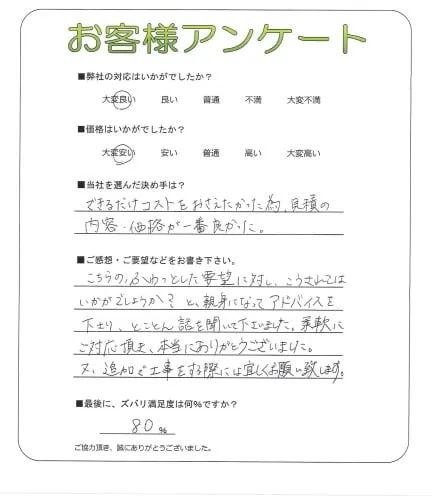 お客様アンケート
■弊社の対応はいかがでしたか？
大変良い 良い 普通 不満 大変不満
■価格はいかがでしたか？
大変安い 安い 普通 高い 大変高い
■当社を選んだ決め手は？
できるだけコストをおさえたかった為、見積の
内容・価格が一番良かった。
■ご感想・ご要望などをお書き下さい。
こちらの、ふわっとした要望に対し、こうされては
いかがでしょうか？と、親身になってアドバイスを
下さり、とことん話を聞いて下さいました。柔軟に
ご対応頂き、本当にありがとうございました。
又、追加で工事をする際には宜しくお願い致します。
■最後に、ズバリ満足度は何％ですか？
80％
ご協力頂き、誠にありがとうございました。